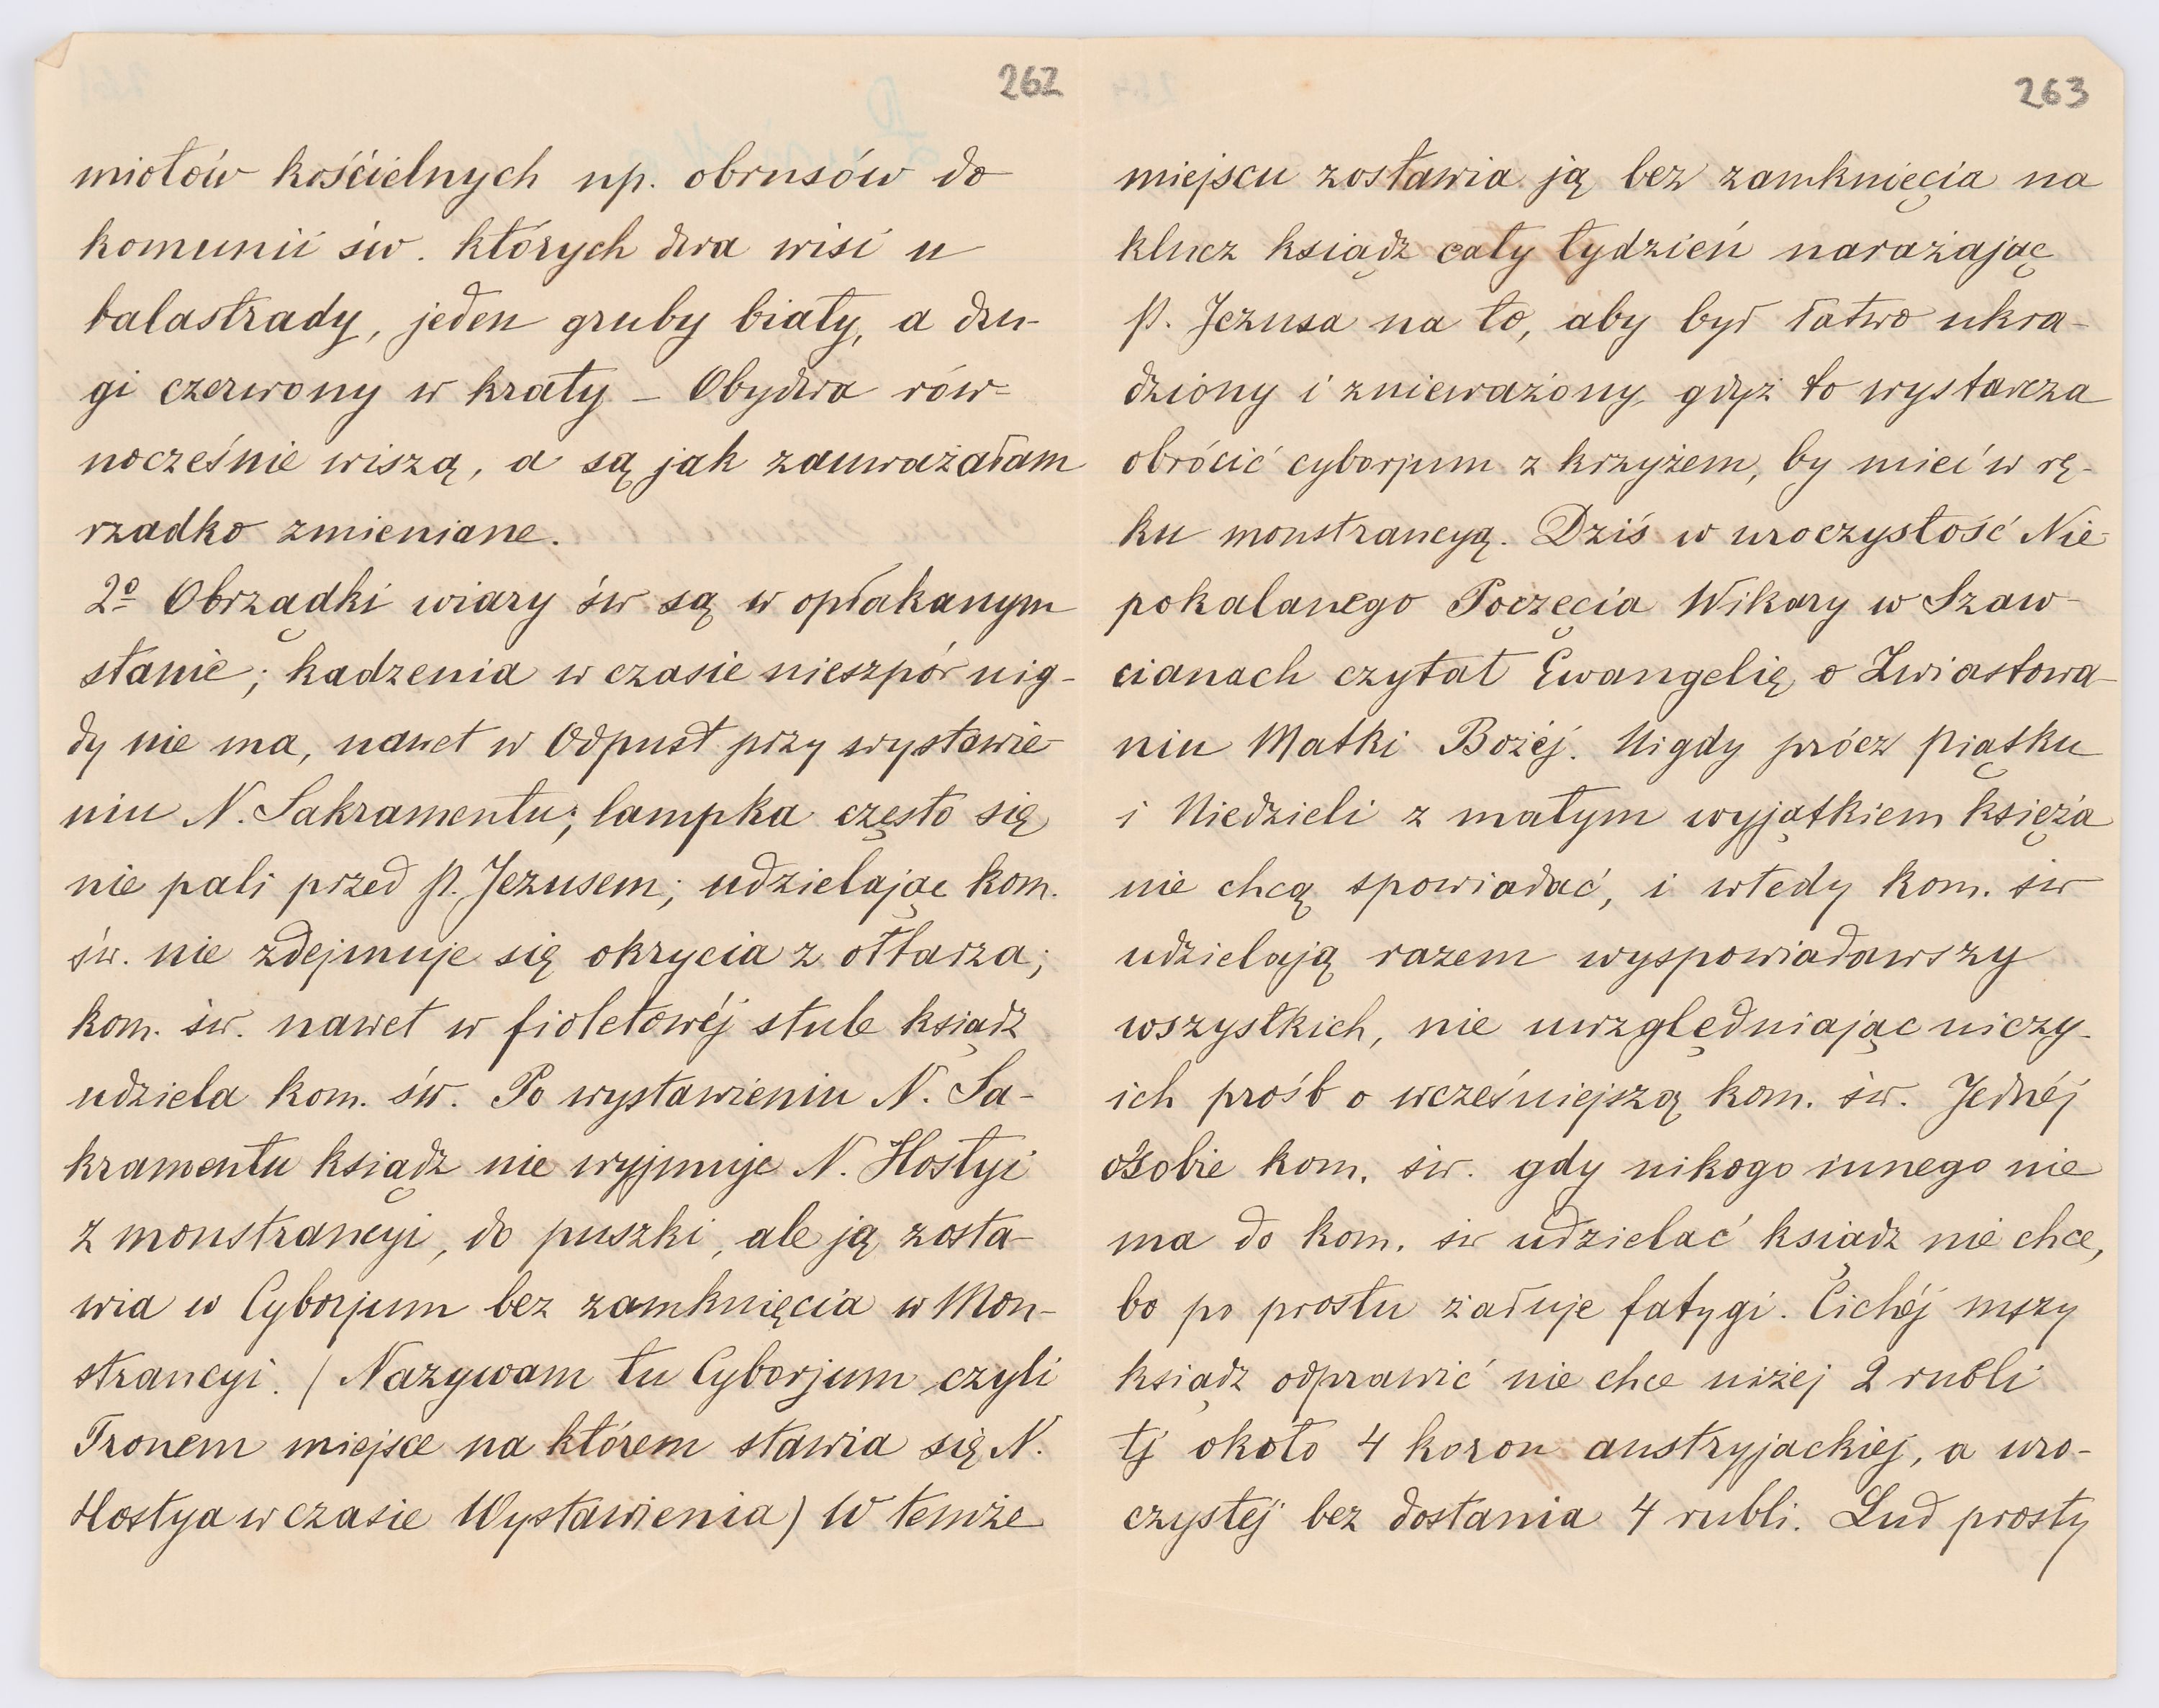 262
miotów kościelnych np. obrusów do
komunii św. których dwa wisi u
balastrady, jeden gruby biały, a dru-
gi czerwony w kraty – Obydwa rów-
nocześnie wiszą, a są jak zauważałam
rzadko zmieniane.
2º Obrządki wiary św są w opłakanym
stanie; kadzenia w czasie nieszpór nig-
dy nie ma, nawet w Odpust przy wystawie-
niu N. Sakramentu; lampka często się
nie pali przed P. Jezusem; udzielając kom.
św. nie zdejmuje się okrycia z ołtarza;
kom. św. nawet w fioletowéj stule ksiądz
udziela kom. św. Po wystawieniu N. Sa-
kramentu ksiądz nie wyjmuje N. Hostyi
z monstrancyi, do puszki, ale ją zosta-
wia w Cyborjum bez zamknięcia w Mon-
strancyi. (Nazywam tu Cyborjum czyli
Tronem miejsce na którem stawia się N.
Hostya w czasie Wystawienia) W temże
263
miejscu zostawia ją bez zamknięcia na
klucz ksiądz cały tydzień narażając
P. Jezusa na to, aby był łatwo ukra-
dziony i znieważony, gdyż to wystarcza
obrócić cyborjum z krzyżem, by mieć w rę-
ku monstrancyą. Dziś w uroczystość Nie-
pokalanego Poczęcia Wikary w Szaw-
cianach czytał Ewangelię o Zwiastowa-
niu Matki Bożéj. Nigdy prócz Piątku
i Niedzieli z małym wyjątkiem księża
nie chcą spowiadać, i wtedy kom. św
udzielają razem wyspowiadawszy
wszystkich, nie uwzględniając niczy-
ich prośb o wcześniejszą kom. św. Jednéj
osobie kom. św. gdy nikogo innego nie
ma do kom. św udzielać ksiądz nie chce,
bo po prostu żałuje fatygi. Cichéj mszy
ksiądz odprawić nie chce niżej 2 rubli
tj około 4 koron austryjackiej, a uro-
czystéj bez dostania 4 rubli. Lud prosty